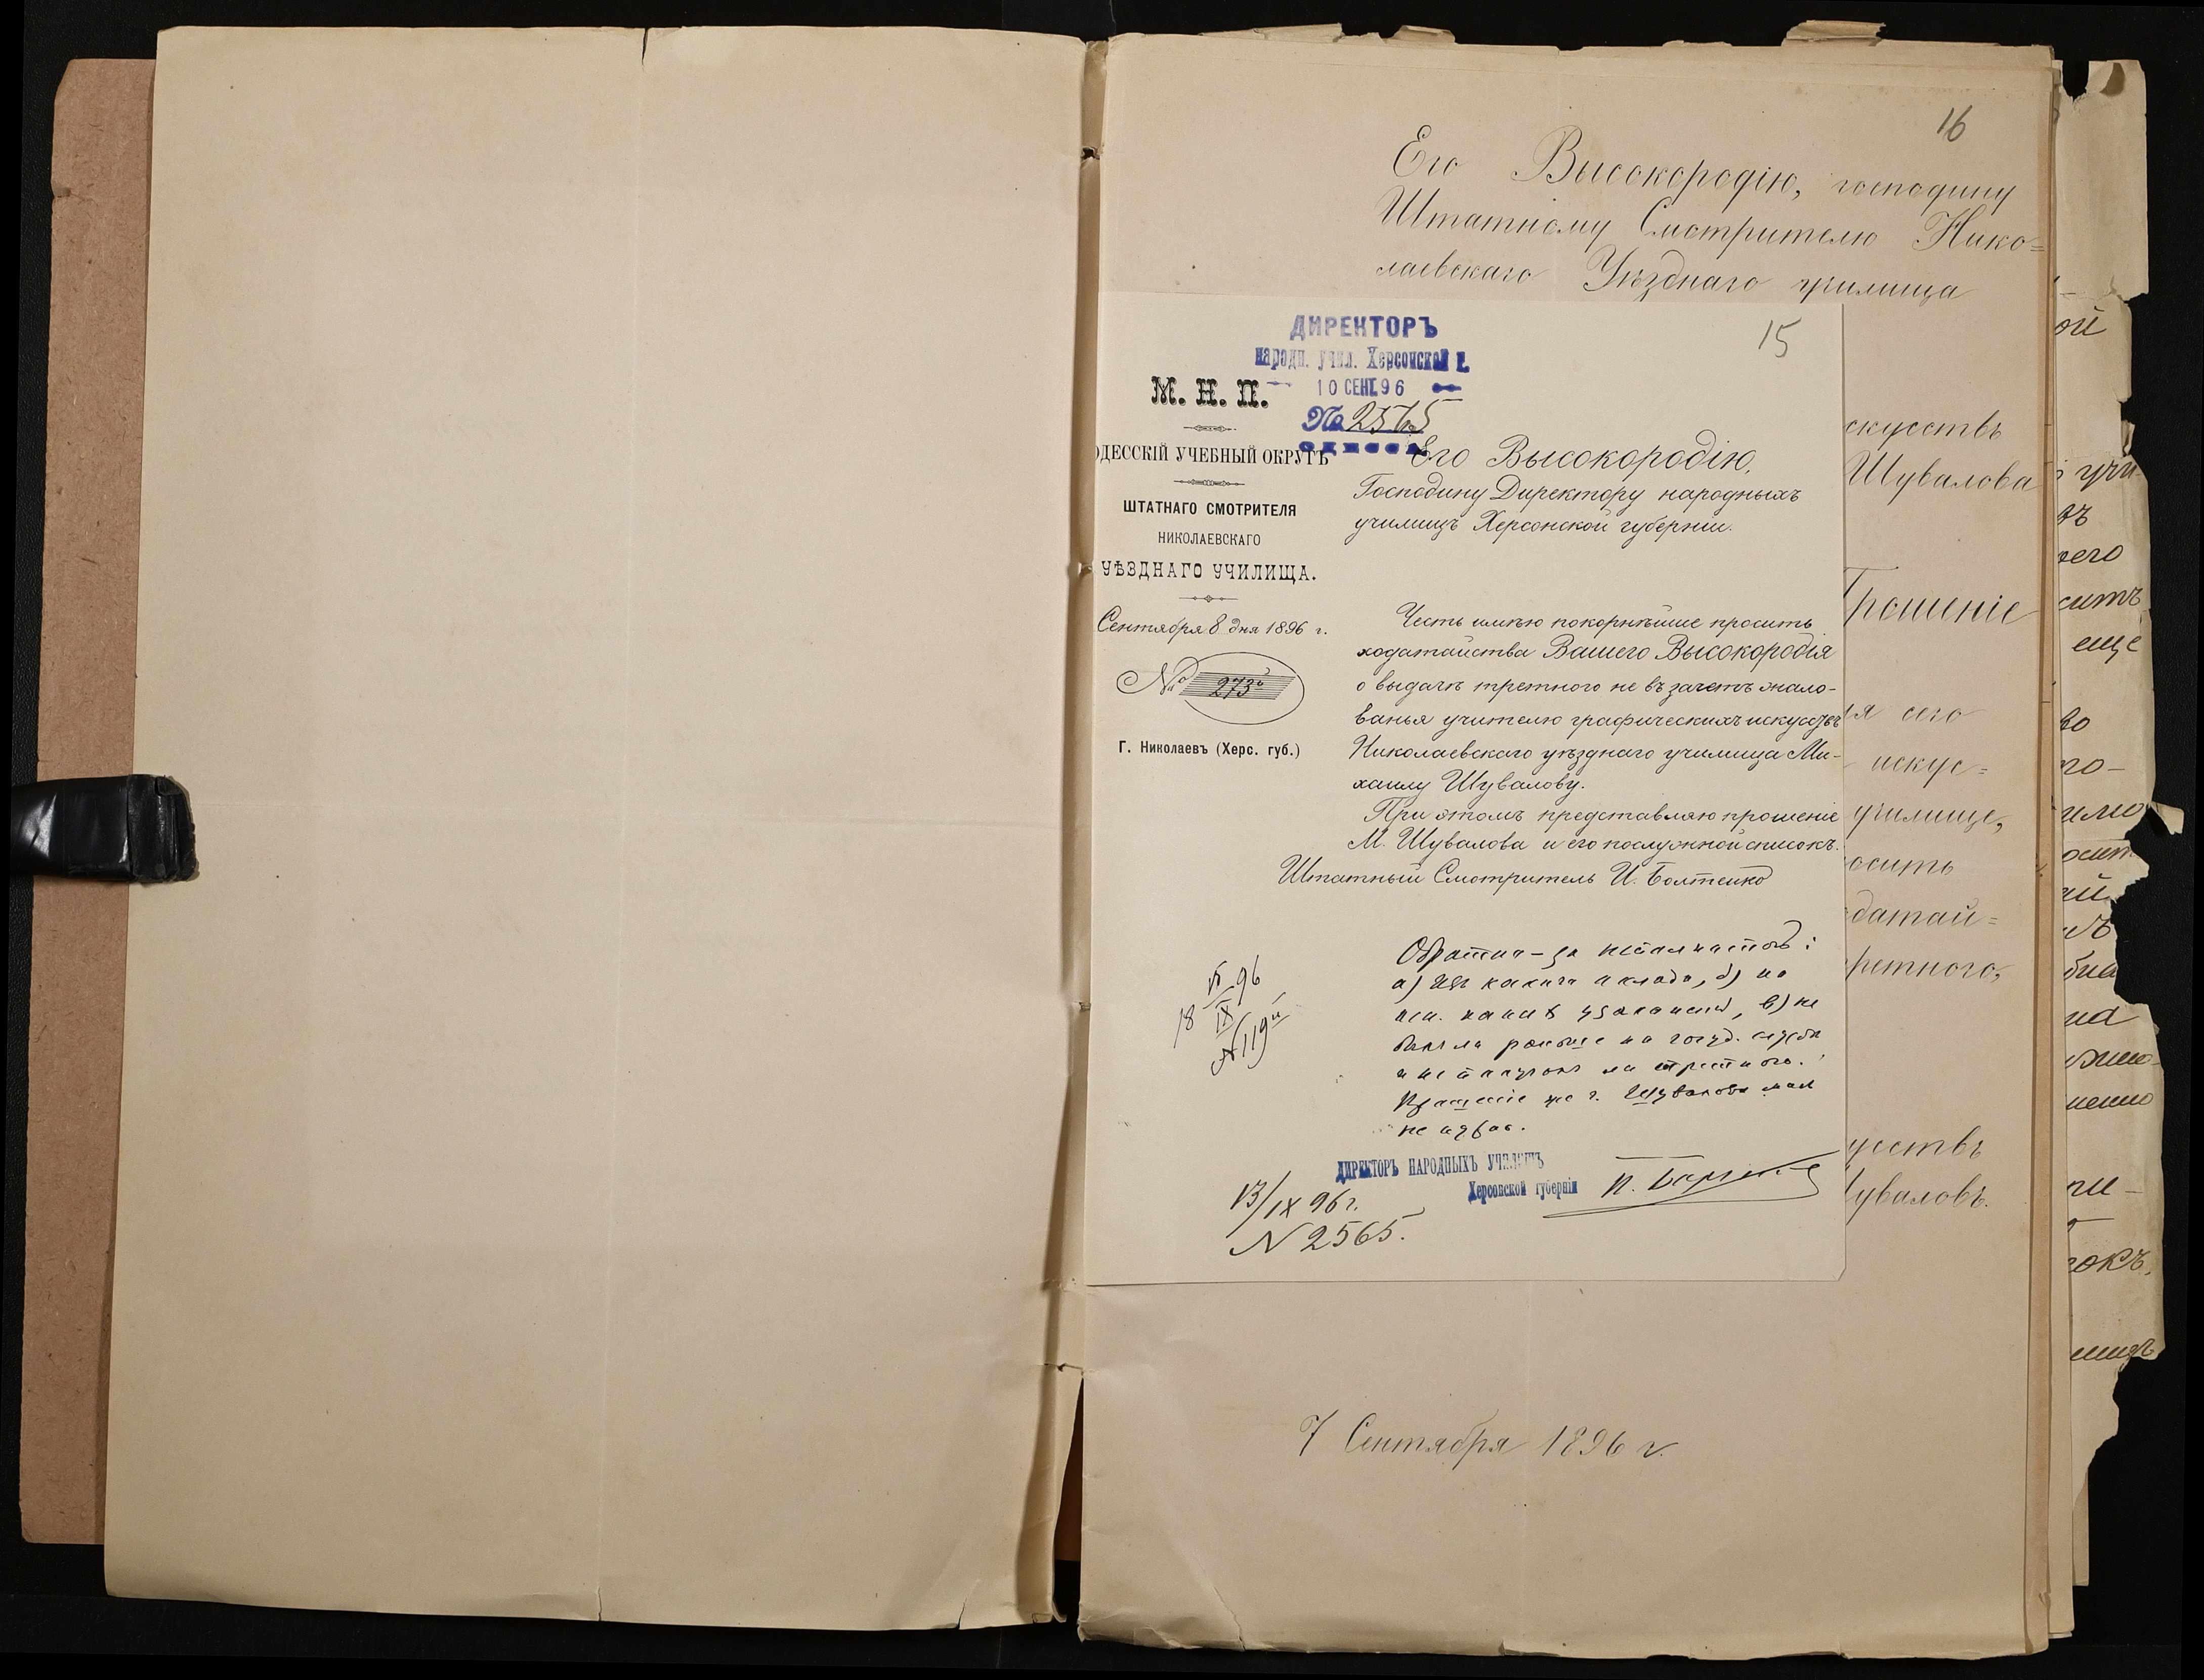 16
Его Высокородію, господину
Штатному Смотрителю Нико=
лаевскаго Уѣзднаго училища
15
ДИРЕКТОРЪ
народн. учил. Херсонской г.
10 СЕНТ. 96
№ 2565
Одесса
М. Н. П.
ОДЕССКІЙ УЧЕБНЫЙ ОКРУГЪ
ШТАТНАГО СМОТРИТЕЛЯ
НИКОЛАЕВСКАГО
УѢЗДНАГО УЧИЛИЩА.
Сентября 8 дня 1896 г.
№ 273
Г. Николаевъ (Херс. губ.)
Его Высокородію,
Господину Директору народныхъ
училищъ Херсонской губерніи.
Честь имѣю покорнѣйше просить
ходатайства Вашего Высокородія
о выдачѣ третного не въ зачетъ жало-
ванья учителю графическихъ искусствъ
Николаевскаго уѣзднаго училища Ми-
хаилу Шувалову.
При этомъ представляю прошеніе
М. Шувалова и его послужной списокъ.
Штатный Смотритель И. Болтенко
18 IX 96
№ 119
а) Изъ какого оклада, б) на
в) не
раньше на госуд. службѣ
ли третного.
Прошеніе же г. Шувалова
ДИРЕКТОРЪ НАРОДНЫХЪ УЧИЛИЩЪ
Херсонской губерніи
13/IX 96 г.
N 2565.
скусствъ
Шувалова
Прошеніе
ія сего
искус=
училище,
осить
датай=
ретного,
усствъ
Шуваловъ.
7 Сентября 1896 г.
ой
его
еще